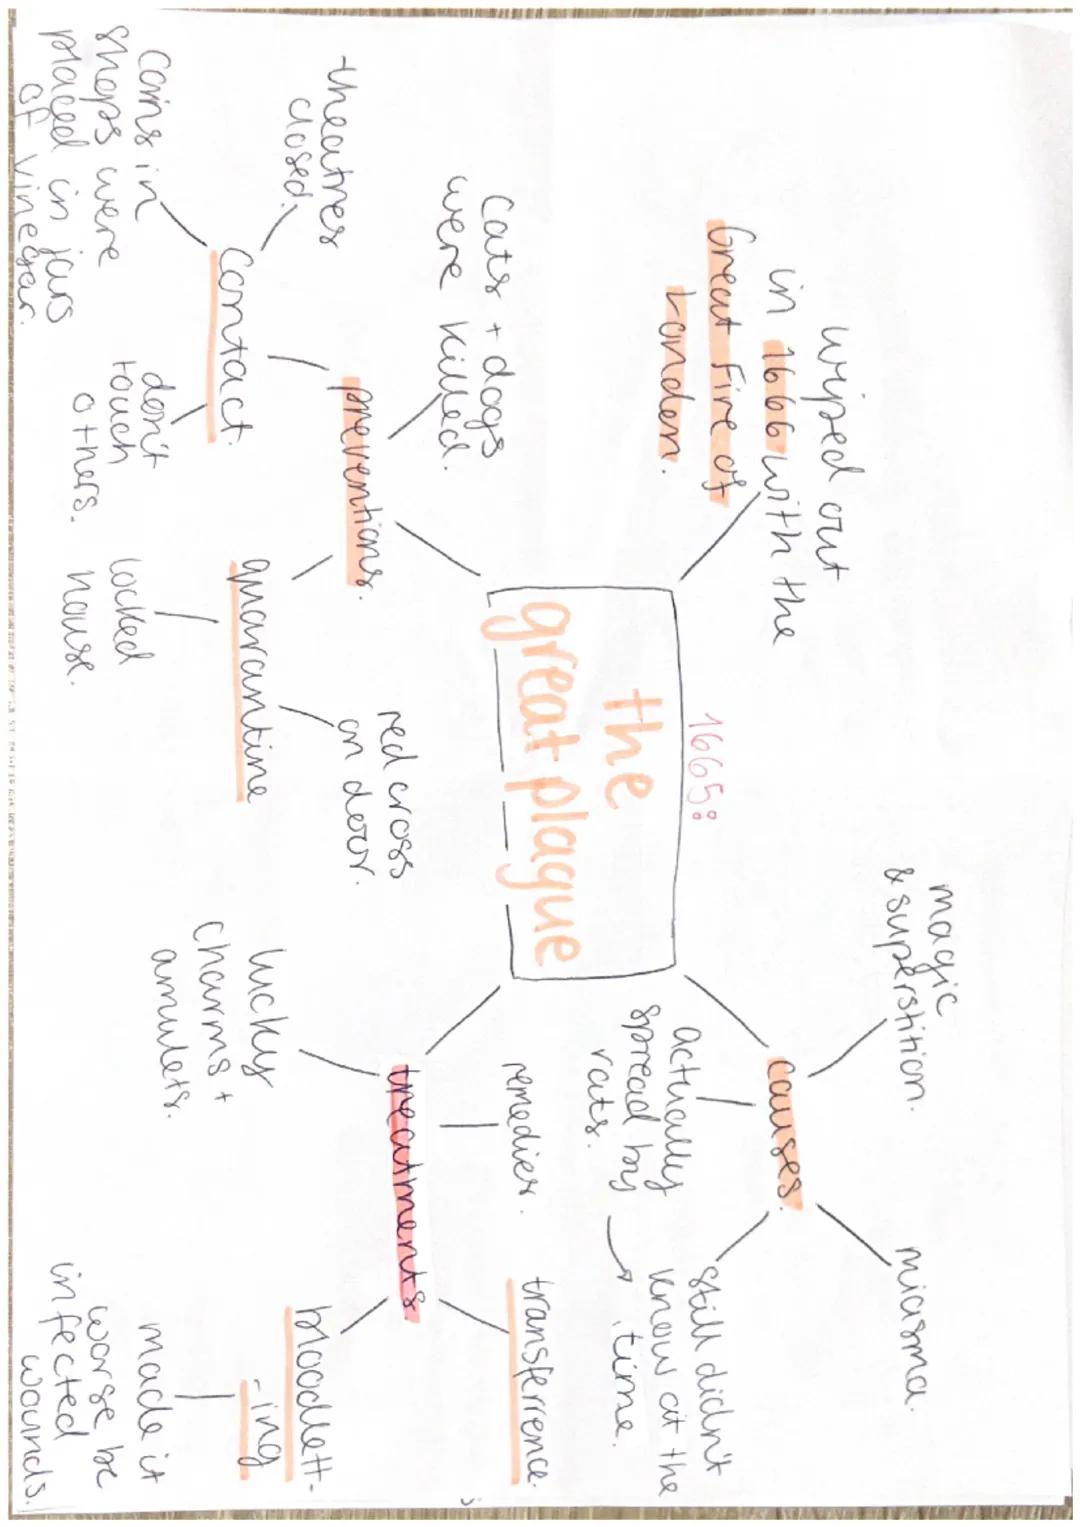 1665:
the
great plague
wiped out
in 1666 with the
Great Fire of
London.
preventions.
cats + dogs
were killed.
contact.
theatres
closed.
coins in
shops were
placed in jars
of vinegar.
don't
touch
others.
quarantine
locked
house.
red cross
on door.
causes.
magic
& superstition.
miasma.
actually
spread by
rats.
still didn't
know at the
time.
treatments
remedies.
transference.
bloodlett-
-ing
made it
worse bc
infected
wounds.
lucky
charms +
amulets.